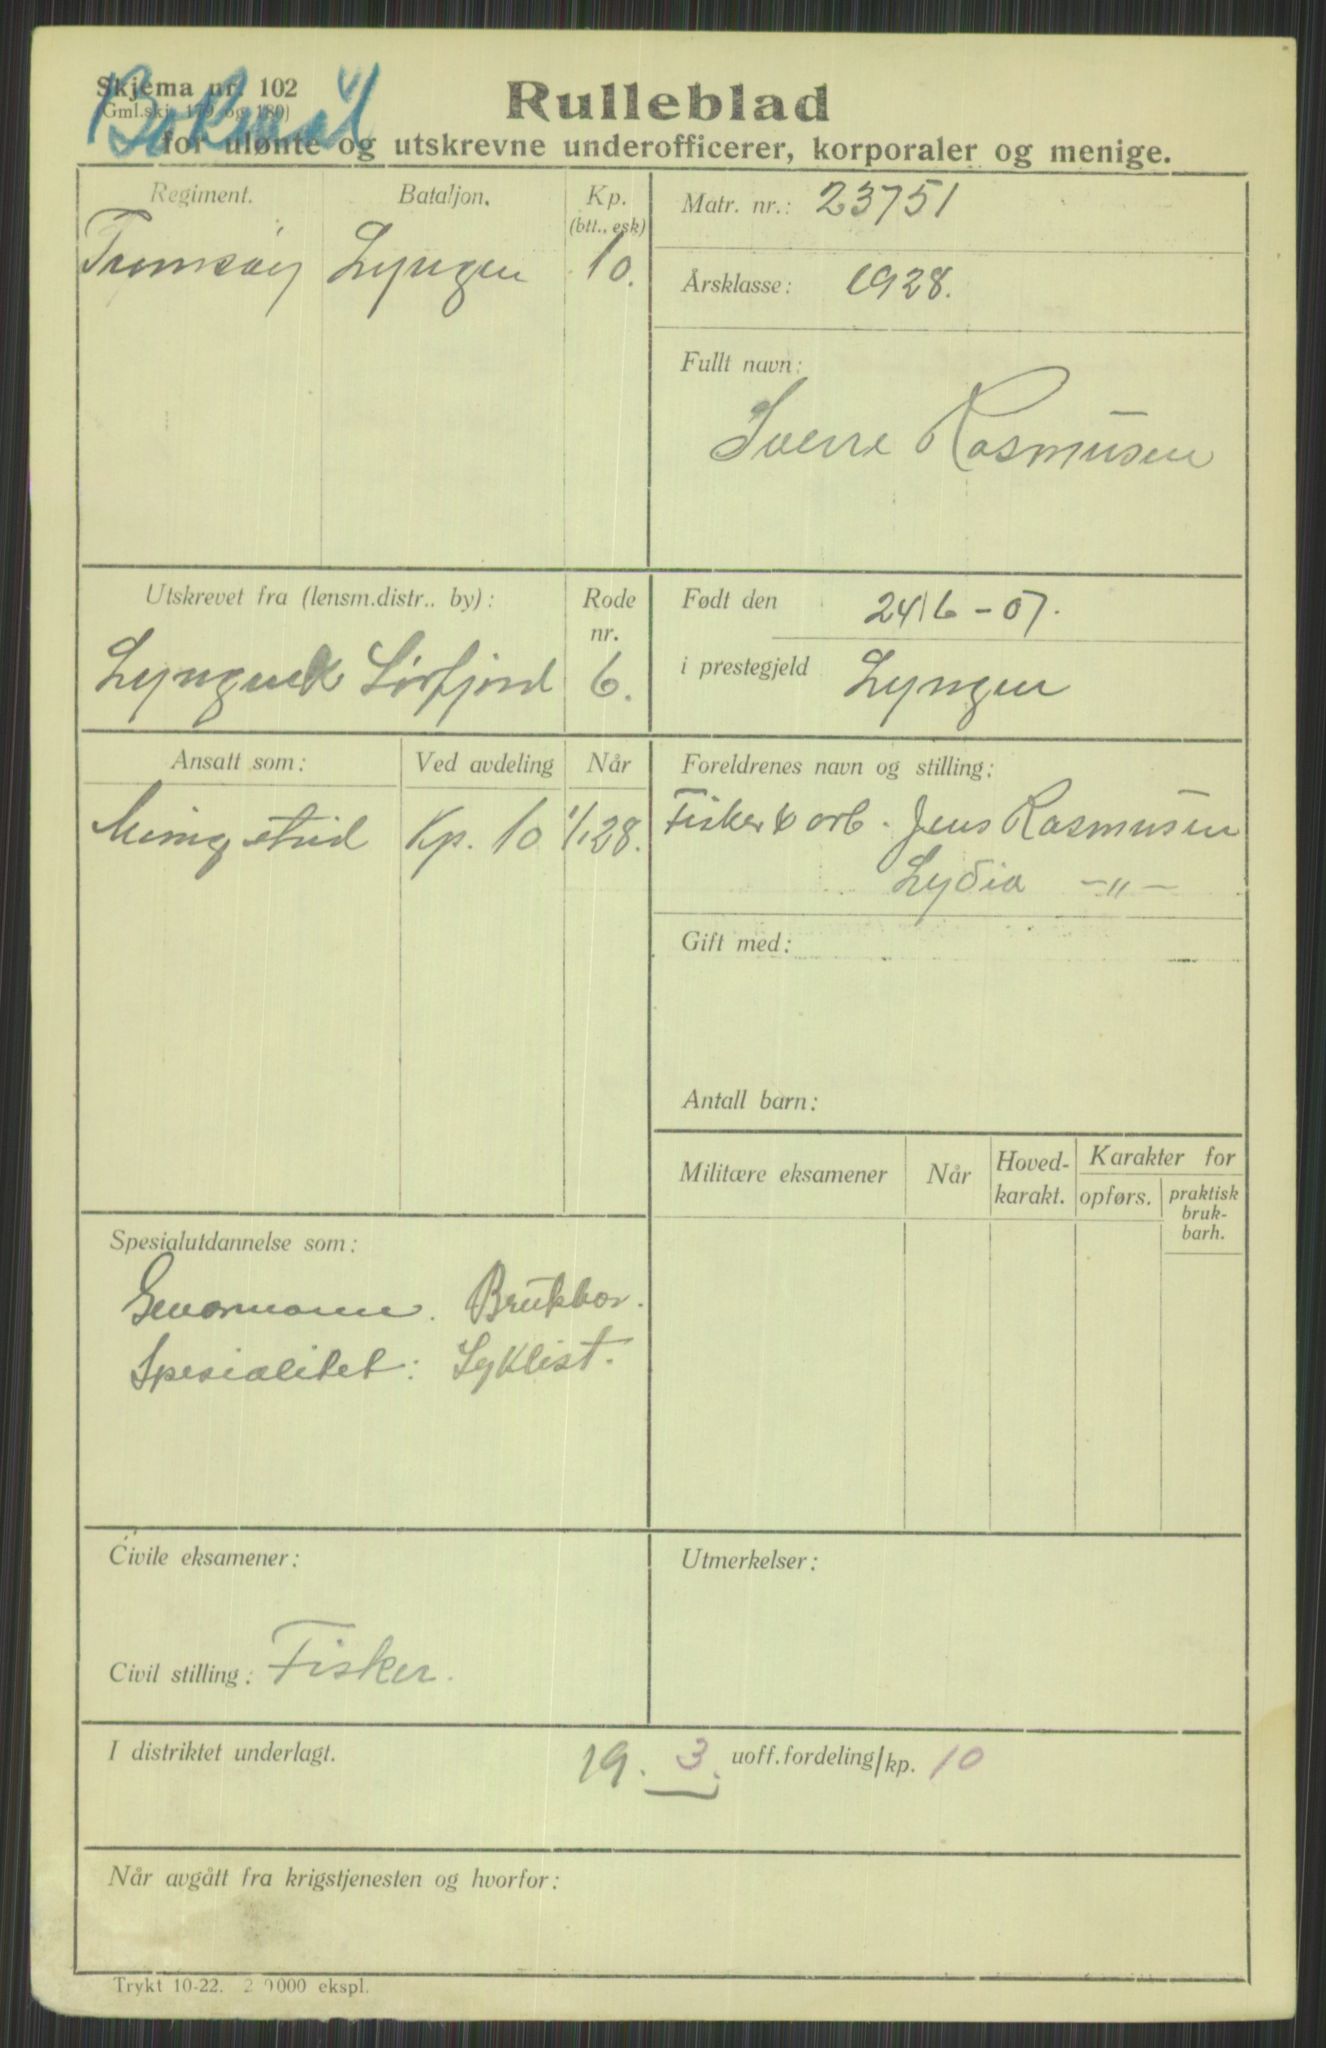 Skjema nr. 102
(Gml.skj. 179 og 180)
Bokmål
Rulleblad
for ulønte og utskrevne underofficerer, korporaler og menige.
Regiment. Bataljon. Kp. (btt., esk)
Lyngen 10.
Matr. nr.: 23751
Årsklasse: 1928.
Fullt navn:
Sverre Rasmusen
Utskrevet fra (lensm.distr.. by): Rode nr.
Sørfjord 6.
Født den 24/6-07.
i prestegjeld Lyngen
Ansatt som: Ved avdeling Når
Menig Kp. 10 1/1 28.
Foreldrenes navn og stilling:
Fisker & arb. Jens Rasmusen
Lydia -"-
Gift med:
Antall barn:
Militære eksamener Når Hoved-karakt. Karakter for
opførs. praktisk bruk-barh.
Spesialutdannelse som:
Geværmann. Brukbar.
Spesialitet: Syklist.
Civile eksamener:
Civil stilling: Fisker.
Utmerkelser:
I distriktet underlagt. 19. 3. uoff.fordeling/kp. 10
Når avgått fra krigstjenesten og hvorfor:
Trykt 10-22. 2 0000 ekspl.